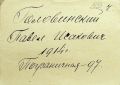 Головинский
Павел Исакович
1914г.
Пограничная - 97.